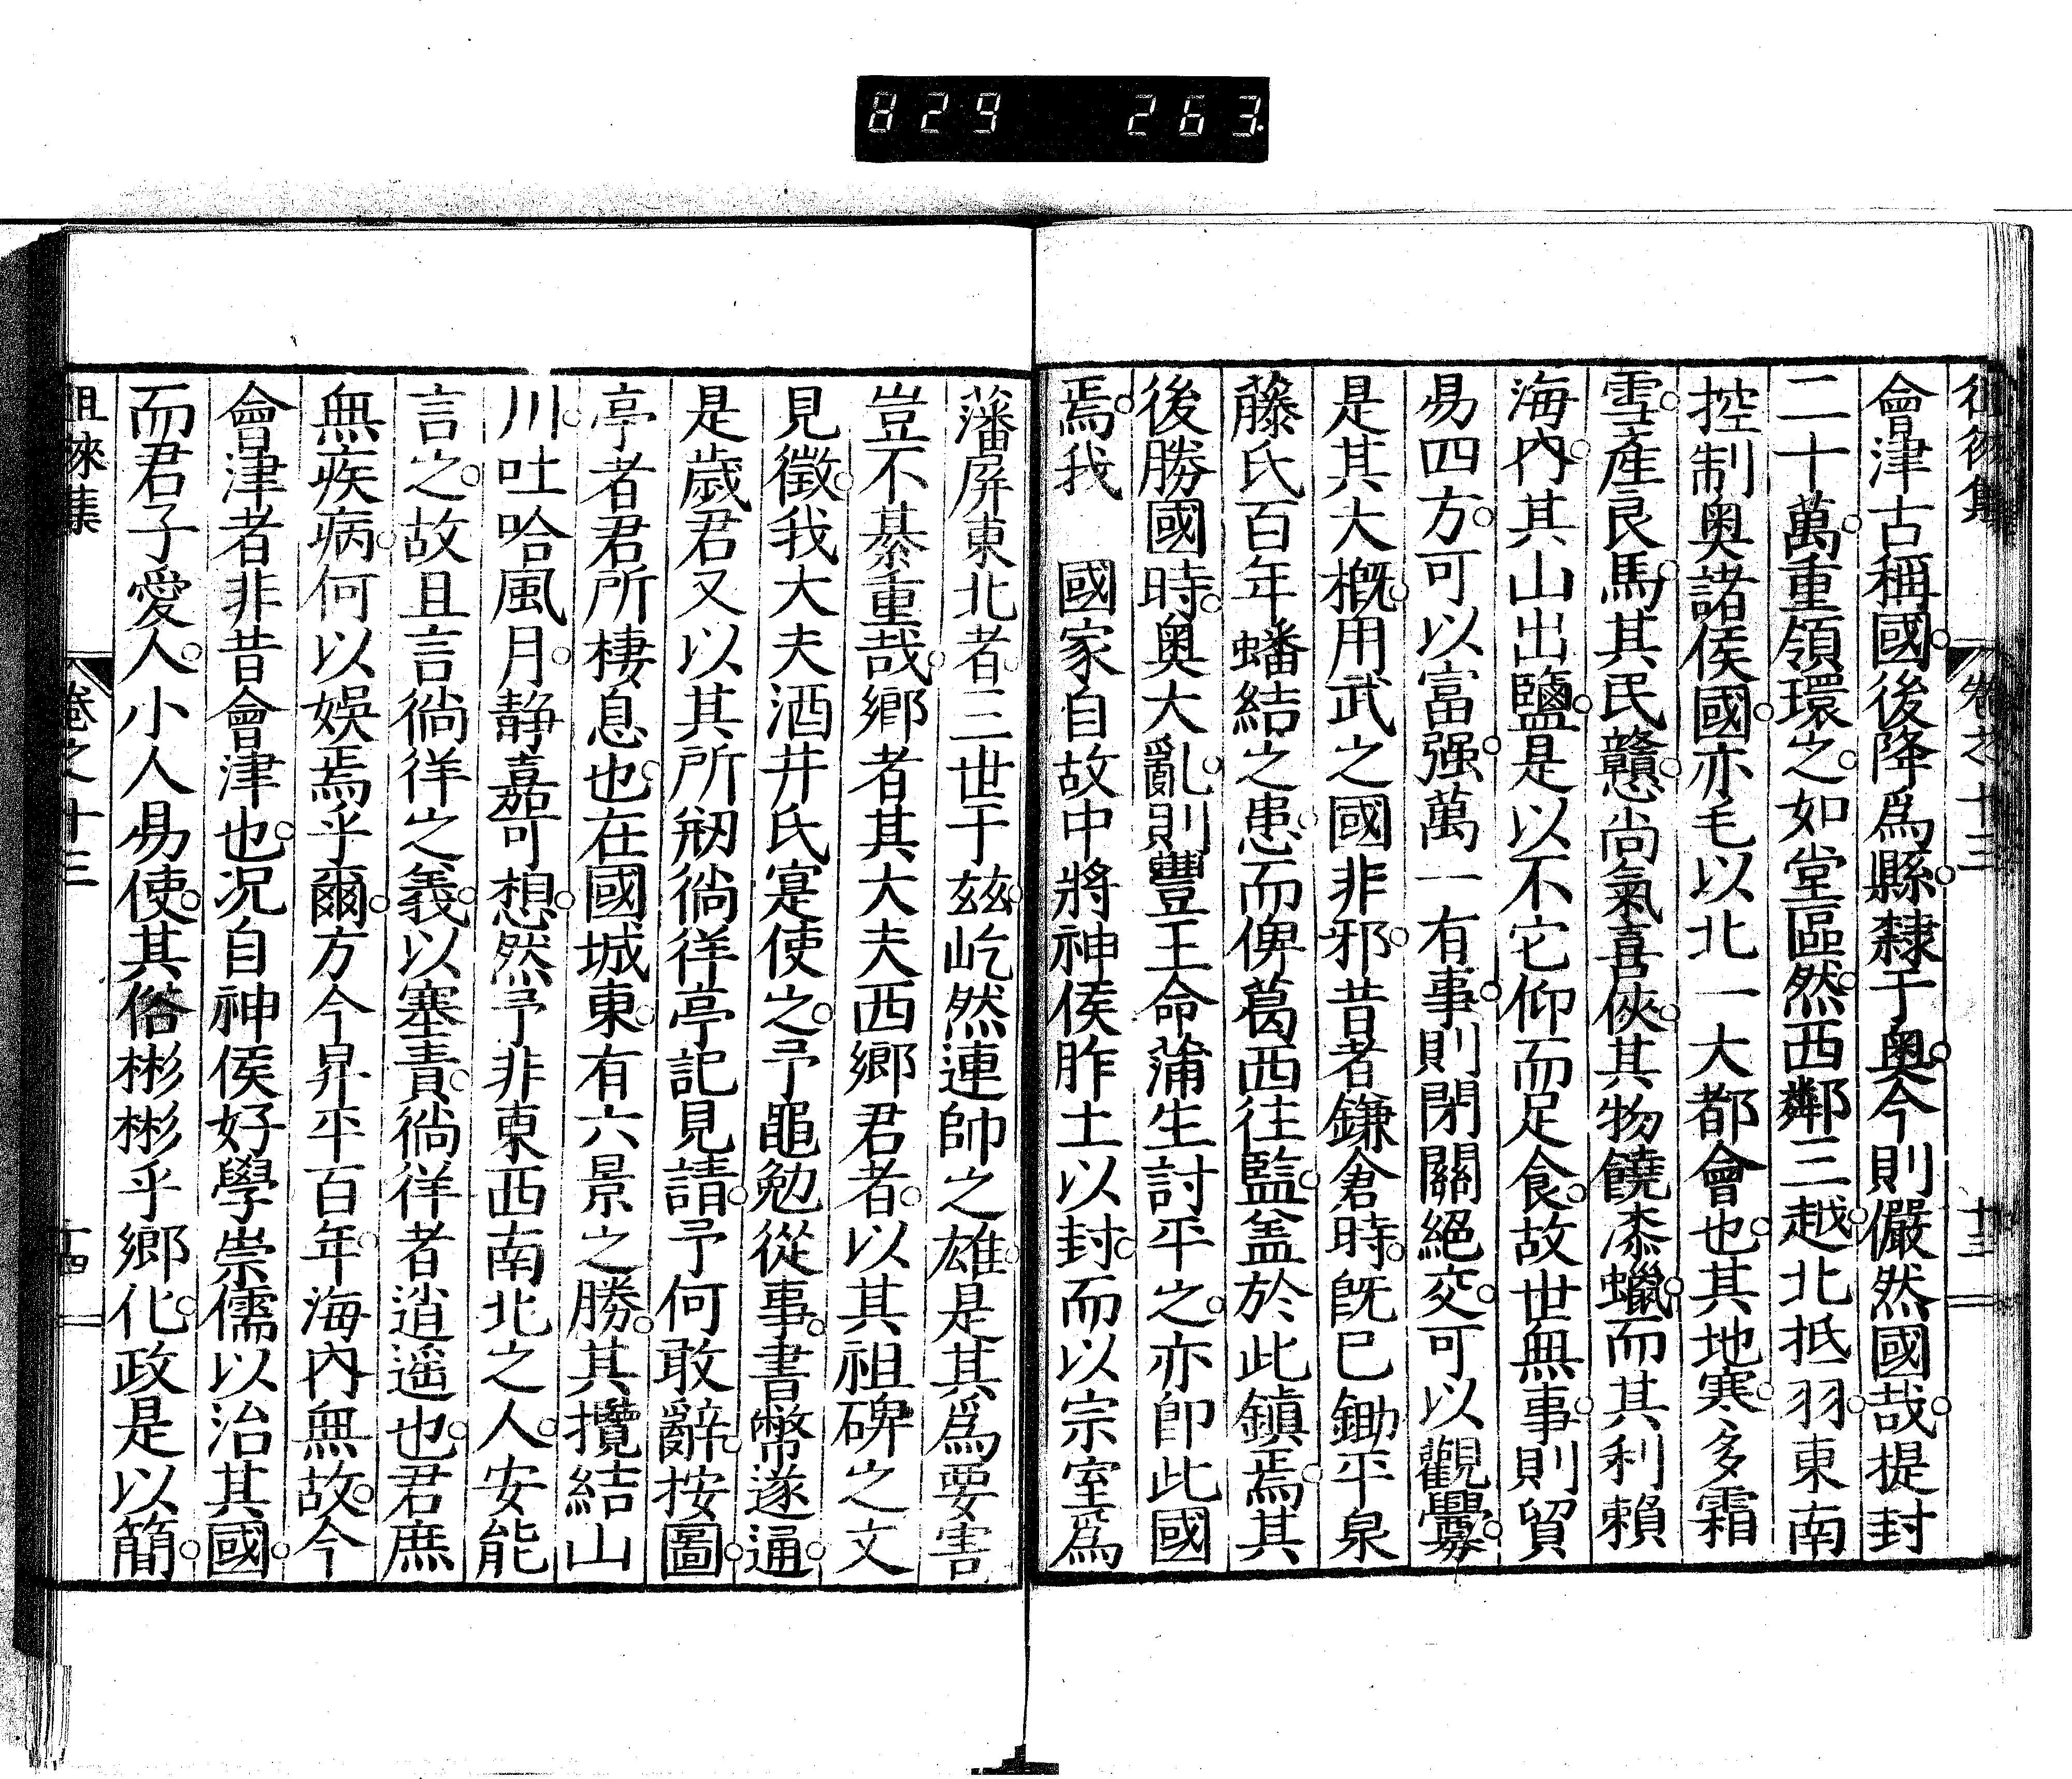 829 263
徂徠集 卷之十三 十三
會津古稱國。後降爲縣。隸于奧。今則儼然國哉。提封
二十萬。重領環之。如堂區然。西鄰三越。北抵羽。東南
控制奧諸侯國。亦毛以北一大都會也。其地寒。多霜
雪。產良馬。其民戇。尚氣喜俠。其物饒漆蠟。而其利賴
海內。其山出鹽。是以不它仰而足食。故世無事。則貿
易四方。可以富强。萬一有事。則閉關絕交。可以觀釁。
是其大槪。用武之國非邪。昔者鎌倉時。旣已鋤平泉
藤氏百年蟠結之患。而俾葛西往監。盖於此鎭焉。其
後勝國時。奧大亂。則豐王命蒲生討平之。亦卽此國
焉。我 國家自故中將神侯胙土以封。而以宗室爲
藩屏東北者。三世于玆。屹然連帥之雄。是其爲要害
豈不綦重哉。鄉者其大夫西鄉君者。以其祖碑之文
見徵。我大夫酒井氏寔使之。予黽勉從事。書幣遂通。
是歲君又以其所剏徜徉亭記見請。予何敢辭。按圖。
亭者君所棲息也。在國城東。有六景之勝。其攬結山
川。吐哈風月。静嘉可想。然予非東西南北之人。安能
言之。故且言徜徉之義。以塞責。徜徉者逍遥也。君庶
無疾病。何以娛焉乎爾。方今昇平百年。海內無故。今
會津者非昔會津也。况自神侯好學崇儒以治其國。
而君子愛人。小人易使。其俗彬彬乎鄉化。政是以簡。
徂徠集 卷之十三 十四